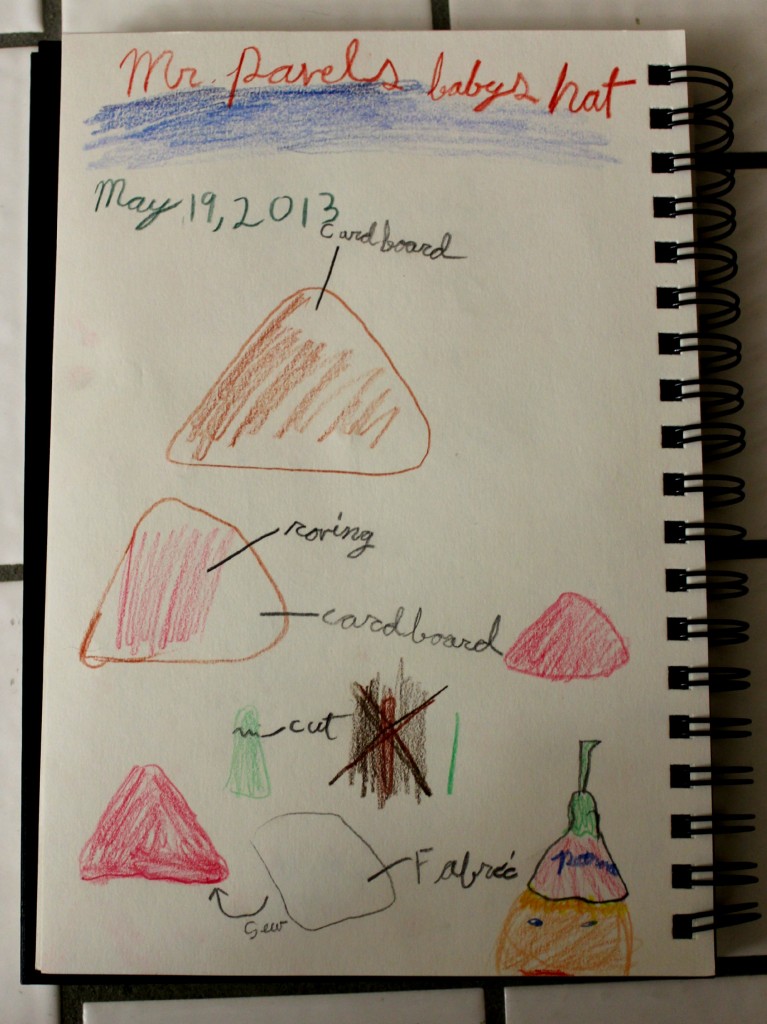 Mr. Pavels babys hat
May 19, 2013
cardboard
roving
cardboard
cut
Fabric
sew